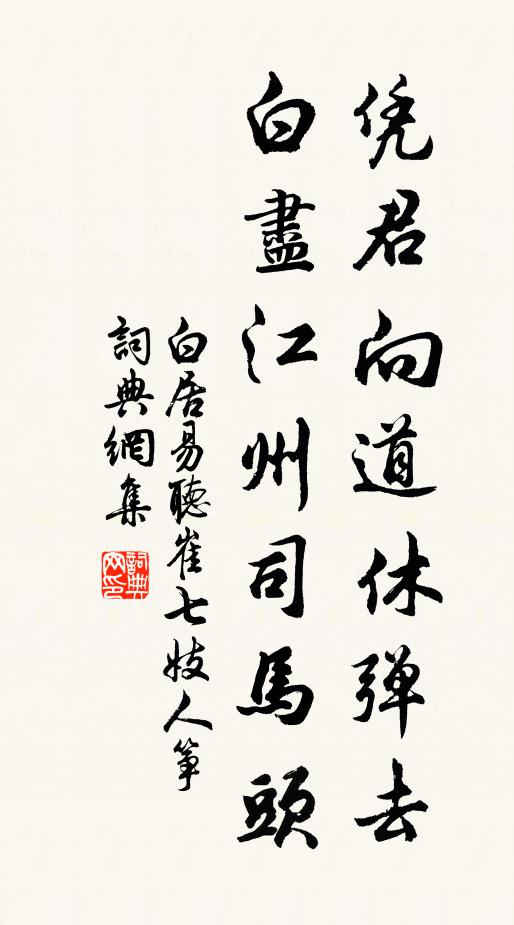 凭君向道休弹去
白盡江州司馬頭
白居易聽崔七妓人筝
詞典網集
詞典网印